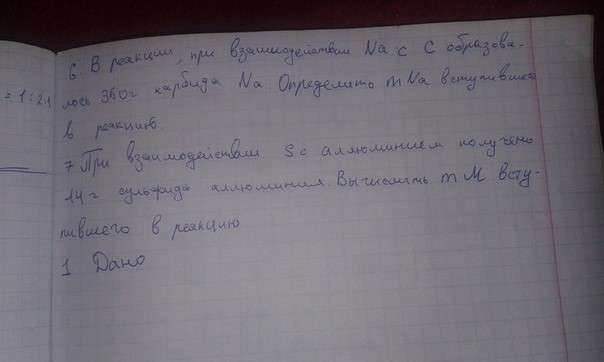 6 В реакции, при взаимодействии Na с С образова-
лось 360г карбида Na. Определить m Na вступившего
= 1 : 2:1
в реакцию.
7 При взаимодействии S с аллюминием получено
14г сульфида аллюминия. Вычислить m Al всту-
пившего в реакцию
1 Дано